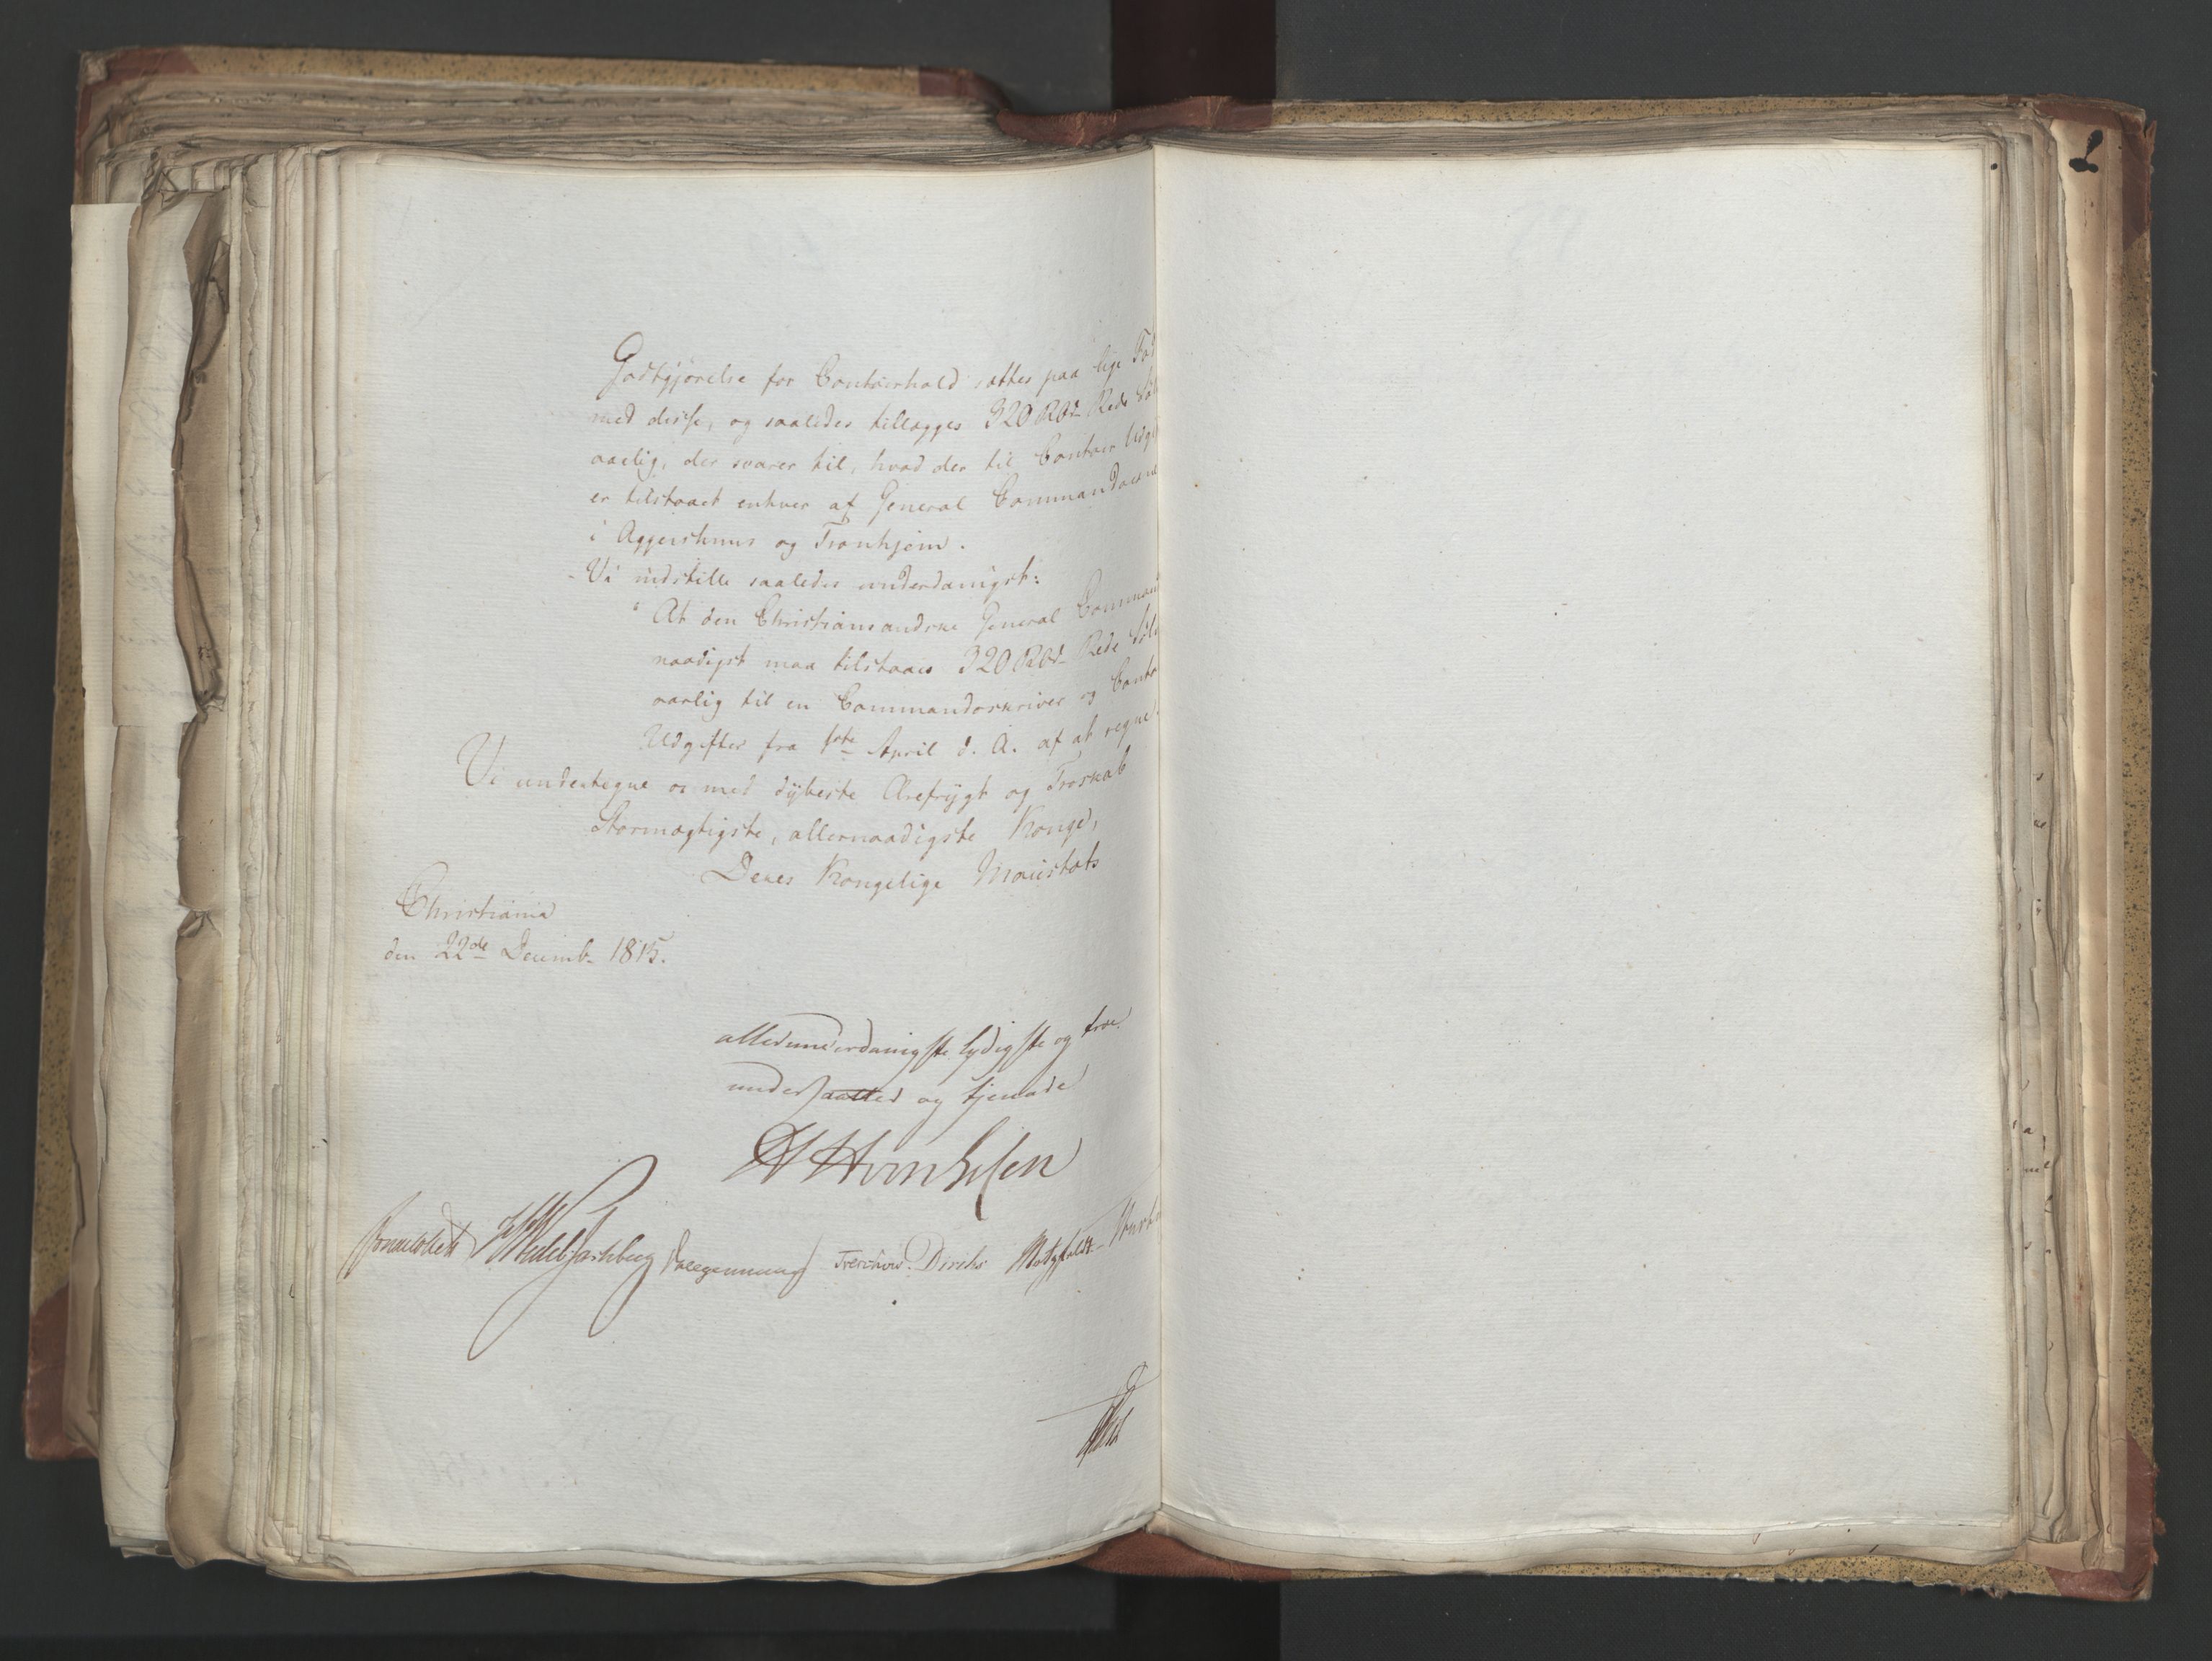 Godtgjørelse for Contoirhold sættes paa lige Fod
med disse, og saaledes tillægges 320 Rbd. Rede Søl
aarlig, der svarer til, hvad der til Contoir Udgi
er tilstaaet enhver af General Commandoerne
i Aggershuus og Tronhjem.
- Vi indstille saaledes underdanigst:
At den Christiansandske General Command
naadigst maa tilstaaes 320 Rbd. Rede Søl
aarlig til en Commandoskriver og Conto
Udgifter fra 1ste April d. A. af at regne.
Vi undertegne os med dybeste Ærefrygt og Troskab
Stormægtigste, allernaadigste Konge,
Deres Kongelige Maiestæts
Christiania
den 22de Decemb. 1815.
allerunderdanigste lydigste og troe
undersaatter og tjenere
Jonas Collett HWedel Jarlsberg Treschow. Diriks Motzfeldt